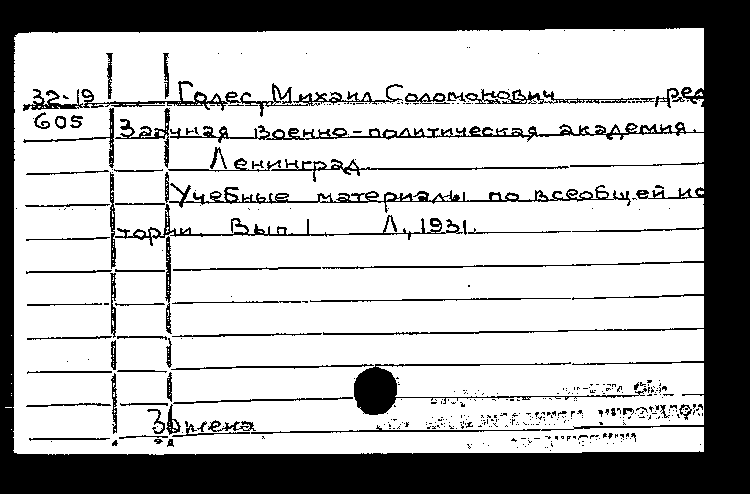 32-19 Годес, Михаил Соломонович, ред
605 Заочная военно-политическая академия.
Ленинград
Учебные материалы по всеобщей ис
тории. Вып. 1. Л., 1931.